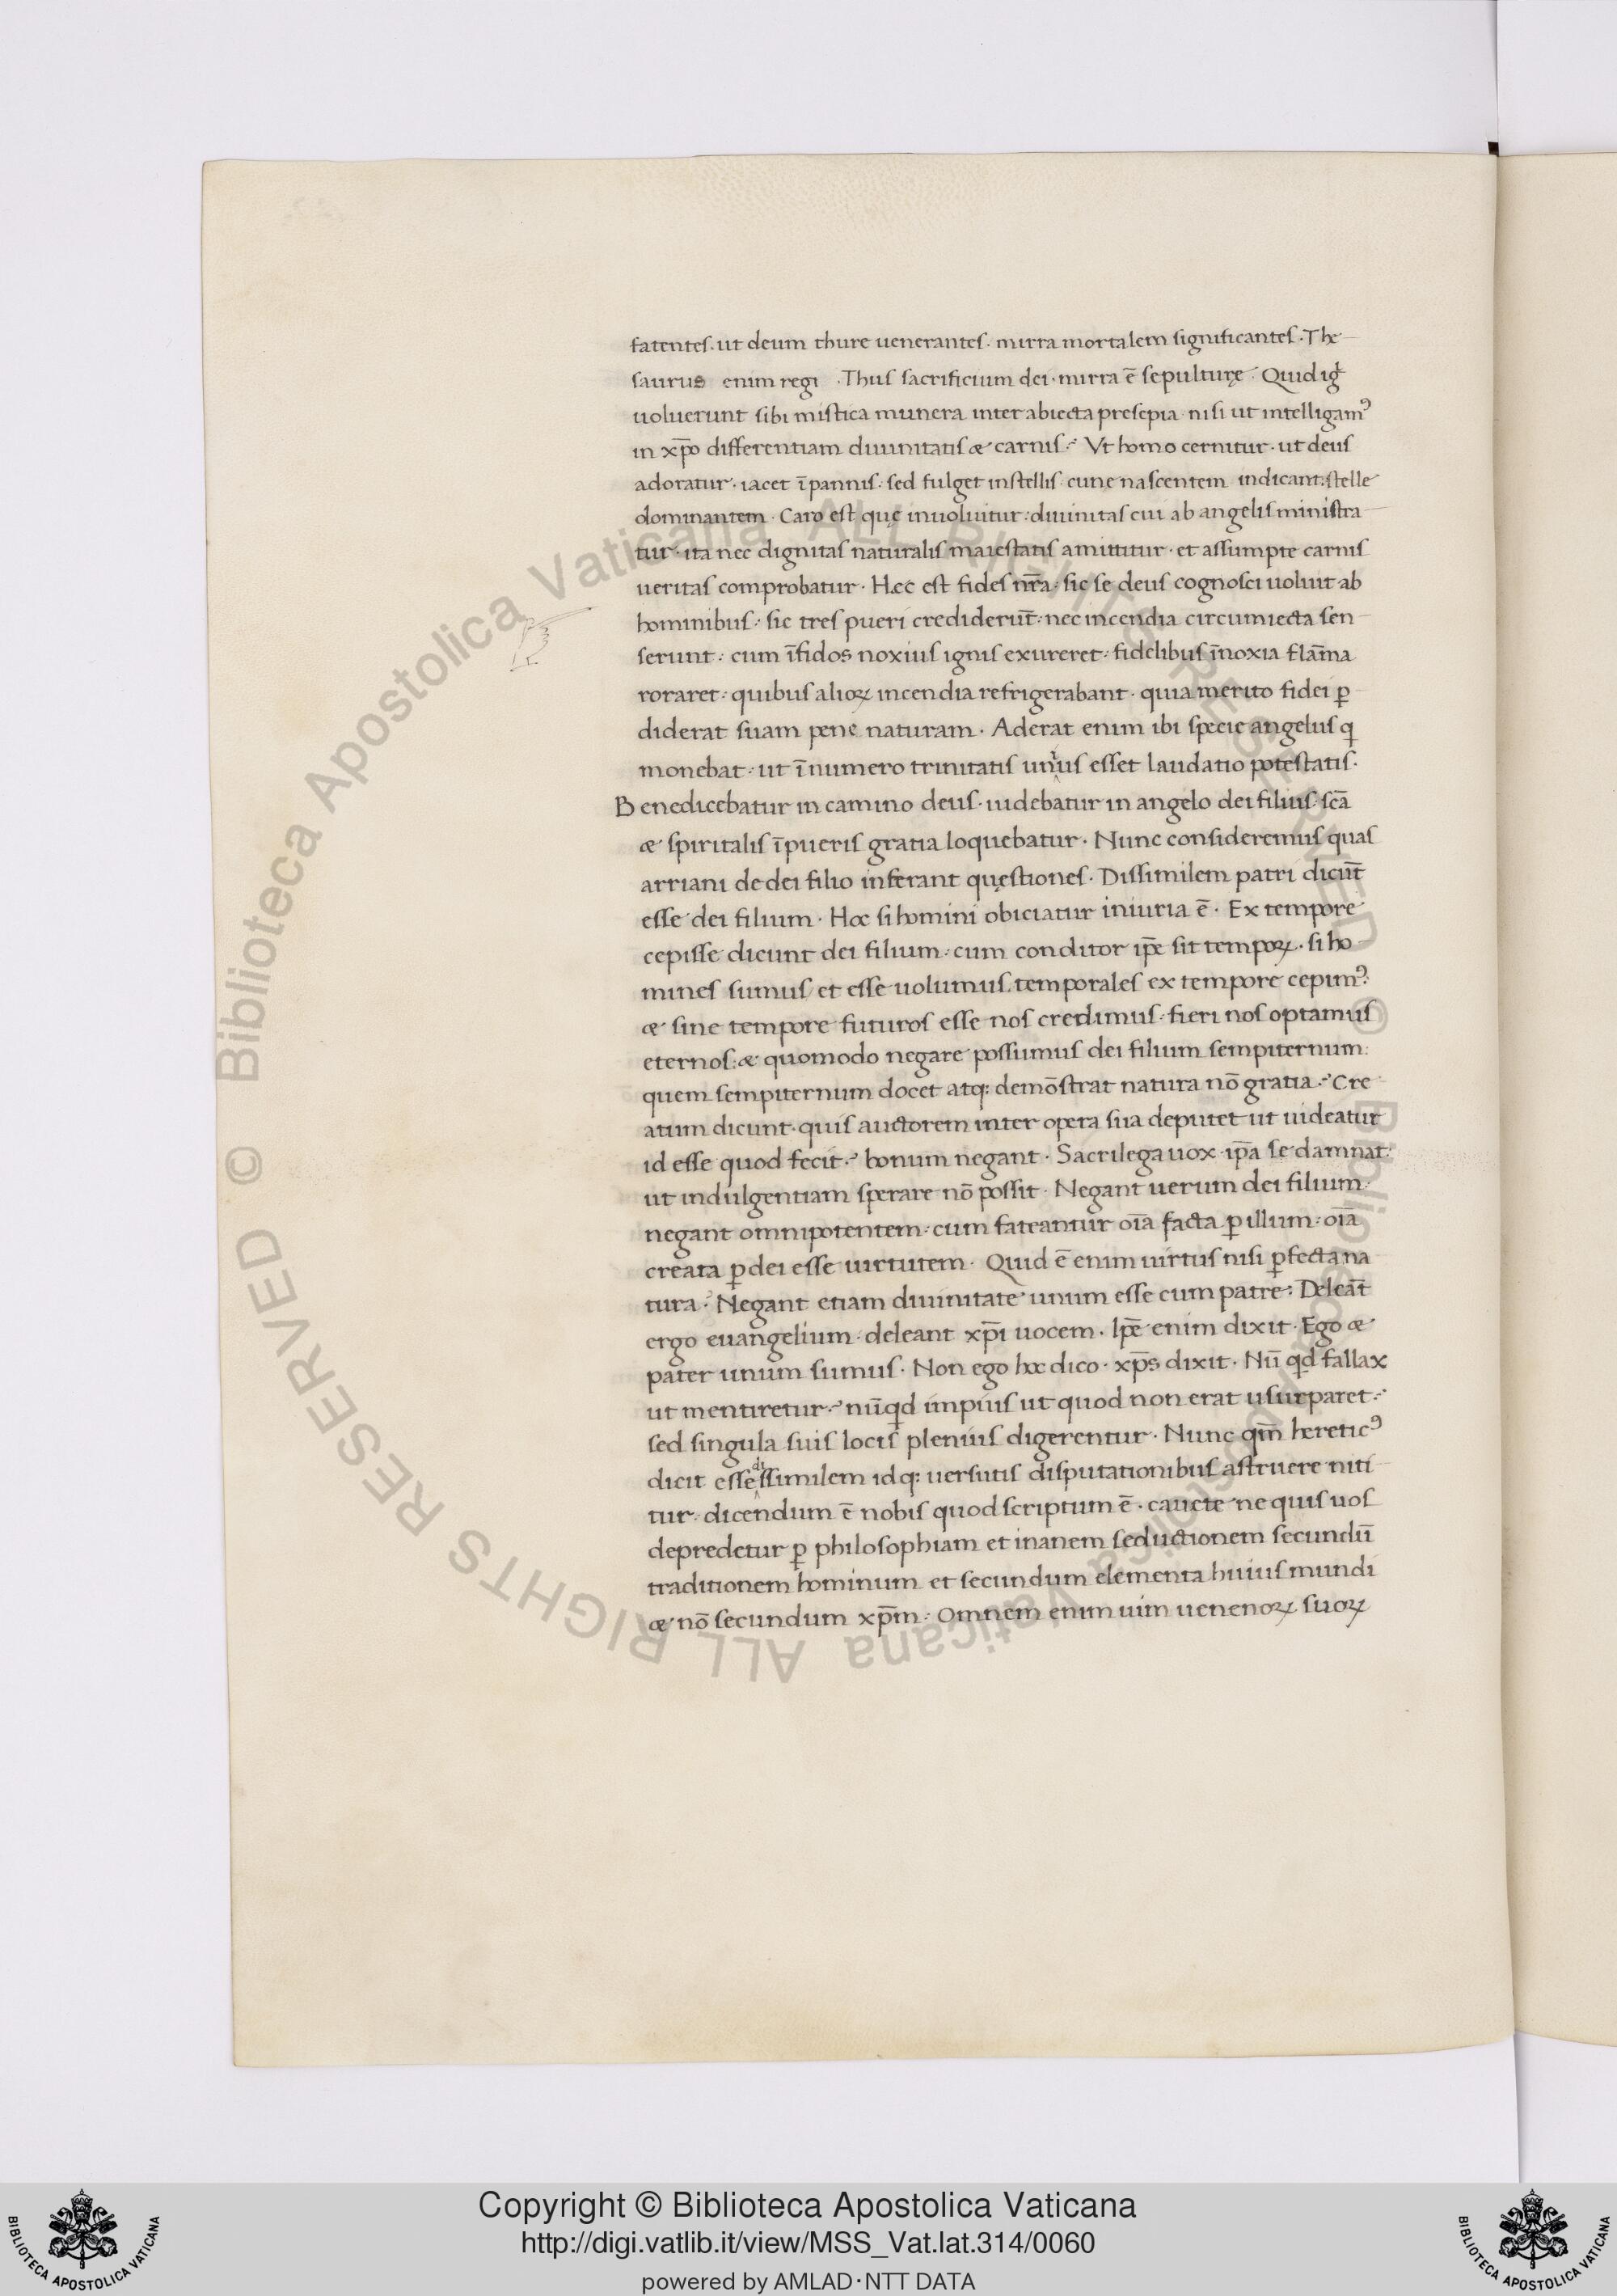 fatentes. ut deum thure uenerantes. mirra mortalem significantes. The
saurus enim regi. Thus sacrificium dei. mirra ē sepulturę. Quid igͥ
uoluerunt sibi mistica munera inter abiecta presepia nisi ut intelligamꝰ
in xp̄o differentiam diuinitatis & carnis? Vt homo cernitur. ut deus
adoratur. iacet ī pannis. sed fulget in stellis. cune nascentem indicant: stelle
dominantem. Caro est quę inuoluitur: diuinitas cui ab angelis ministra
tur. ita nec dignitas naturalis maiestatis amittitur. et assumpte carnis
ueritas comprobatur. Hæc est fides nr̄a. sic se deus cognosci uoluit ab
hominibus: sic tres pueri crediderūt: nec incendia circumiecta sen
serunt: cum īfidos noxius ignis exureret: fidelibus īnoxia flāma
roraret: quibus alioꝝ incendia refrigerabant. quia merito fidei ꝑ
diderat suam pene naturam. Aderat enim ibi specie angelus q
monebat: ut ī numero trinitatis unius esset laudatio potestatis.
Benedicebatur in camino deus. uidebatur in angelo dei filius: scā
& spiritalis ī pueris gratia loquebatur. Nunc consideremus quas
arriani de dei filio inferant quęstiones. Dissimilem patri dicūt
esse dei filium. Hoc si homini obiciatur iniuria ē. Ex tempore
cepisse dicunt dei filium: cum conditor ip̄e sit tempoꝝ. si ho
mines sumus et esse uolumus temporales ex tempore cepimꝰ:
& sine tempore futuros esse nos credimus: fieri nos optamus
eternos: & quomodo negare possumus dei filium sempiternum:
quem sempiternum docet atq: demōstrat natura nō gratia? Cre
atum dicunt. quis auctorem inter opera sua deputet ut uideatur
id esse quod fecit? bonum negant. Sacrilega uox ip̄a se damnat:
ut indulgentiam sperare nō possit. Negant uerum dei filium.
negant omnipotentem: cum fateantur oīa facta ꝑ illum: oīa
creata ꝑ dei esse uirtutem. Quid ē enim uirtus nisi ꝑfecta na
tura? Negant etiam diuinitate unum esse cum patre: Deleāt
ergo euangelium. deleant xp̄i uocem. Ip̄e enim dixit. Ego &
pater unum sumus. Non ego hoc dico. xp̄s dixit. Nū qd fallax
ut mentiretur? nūqd impius ut quod non erat usurparet?
sed singula suis locis plenius digerentur. Nunc qm̄ hereticꝰ
dicit esse dissimilem idq: uersutis disputationibus astruere niti
tur. dicendum ē nobis quod scriptum ē. cauete ne quis uos
depredetur ꝑ philosophiam et inanem seductionem secundū
traditionem hominum et secundum elementa huius mundi
& nō secundum xp̄m: Omnem enim uim uenenoꝝ suoꝝ
© Biblioteca Apostolica Vaticana ALL RIGHTS RESERVED
© Biblioteca Apostolica Vaticana ALL RIGHTS RESERVED
Copyright © Biblioteca Apostolica Vaticana
http://digi.vatlib.it/view/MSS_Vat.lat.314/0060
powered by AMLAD·NTT DATA
BIBLIOTECA APOSTOLICA VATICANA
BIBLIOTECA APOSTOLICA VATICANA